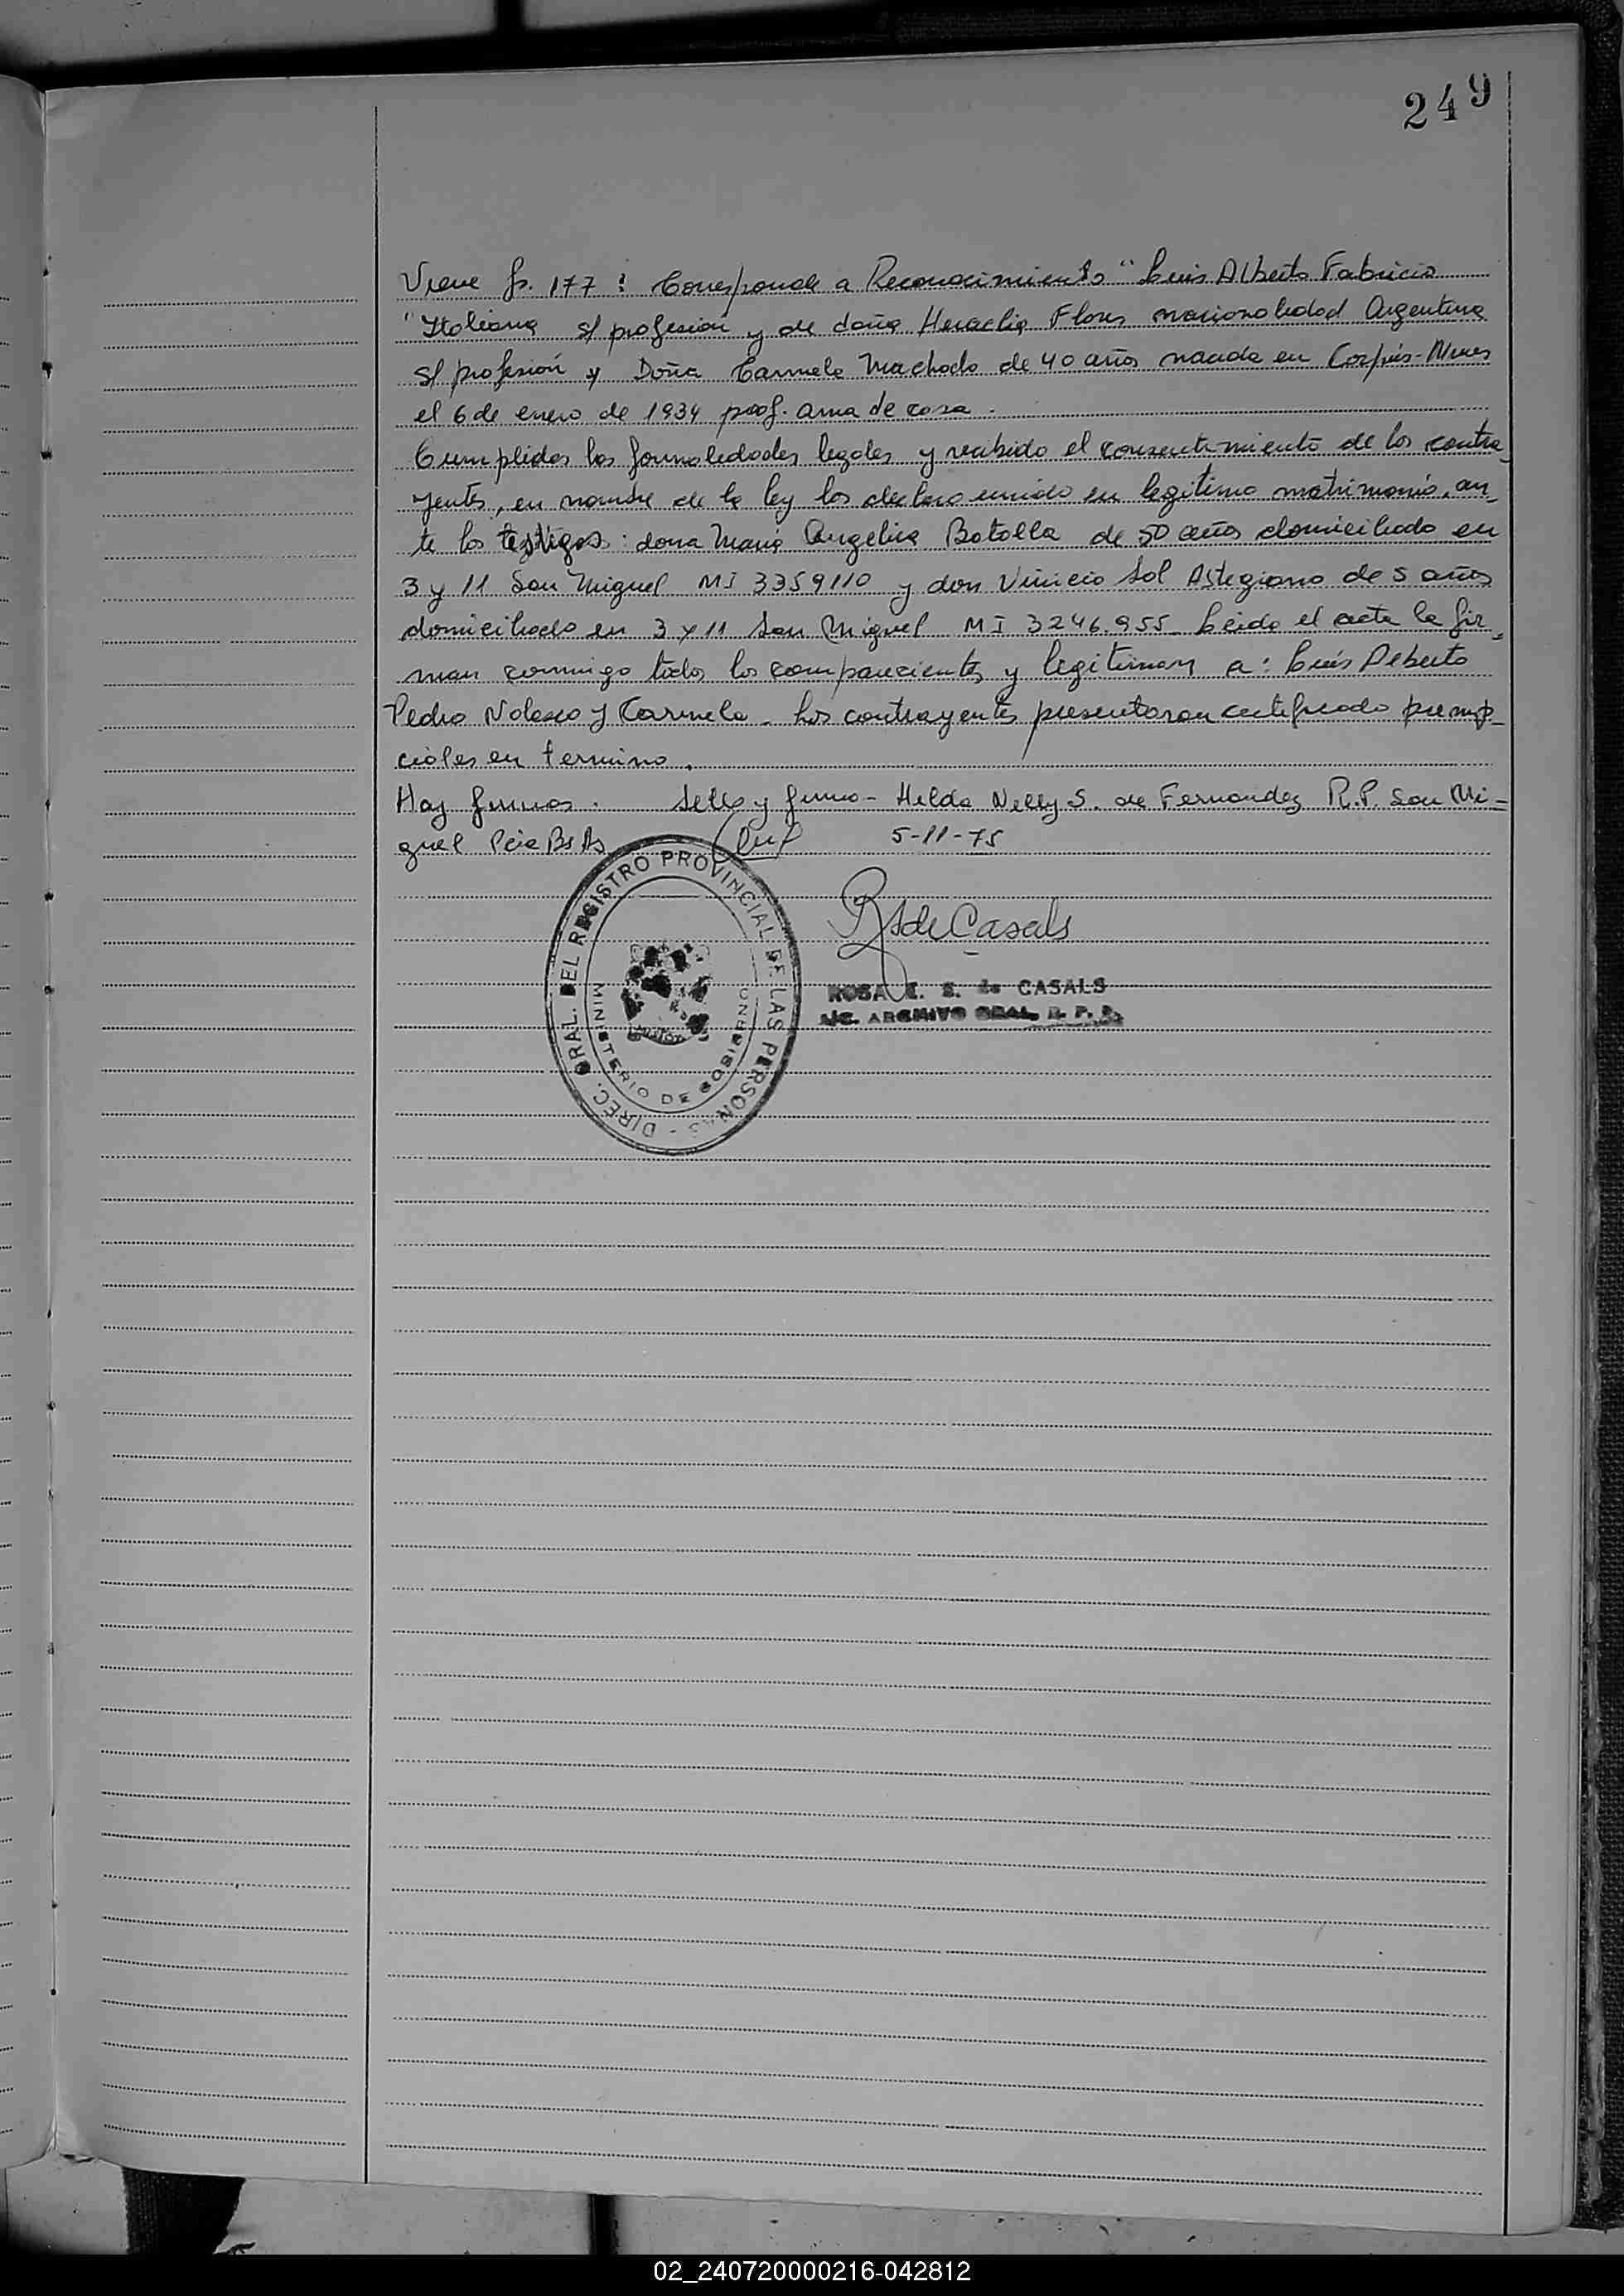 249
Viene fs. 177 : Corresponde a Reconocimiento "Luis Alberto Fabricio
"Italiana s/ profesión y de doña Heraclia Flores nacionalidad Argentina
s/ profesión y Doña Carmela Machado de 40 años nacida en Corpus-Mnes
el 6 de enero de 1934 prof. ama de casa.
Cumplidas las formalidades legales y recibido el consentimiento de los contra-
yentes, en nombre de la ley los declaro unido en legitimo matrimonio, an-
te los testigos: dona Maria Angelica Batolla de 50 años domiciliado en
3 y 11 San Miguel MI 3359110 y don Vinicio Sol Astegiano de 5 años
domiciliado en 3 y 11 San Miguel MI 3246.955 Leida el acta la fir-
man conmigo todos los comparecientes y legitiman a: Luis Alberto
Pedro Nolasco y Carmela. Los contrayentes presentaron certificado prenup-
ciales en termino.
Hay firmas. Sello y firma - Helda Nelly S. de Fernandez R.P. San Mi-
guel Pcia Bs As 5-11-75
RSde Casals
ROSA E. S. de CASALS
A/C. ARCHIVO GRAL. R. P. P.
DIREC. GRAL. DEL REGISTRO PROVINCIAL DE LAS PERSONAS -
MINISTERIO DE GOBIERNO
02_240720000216-042812